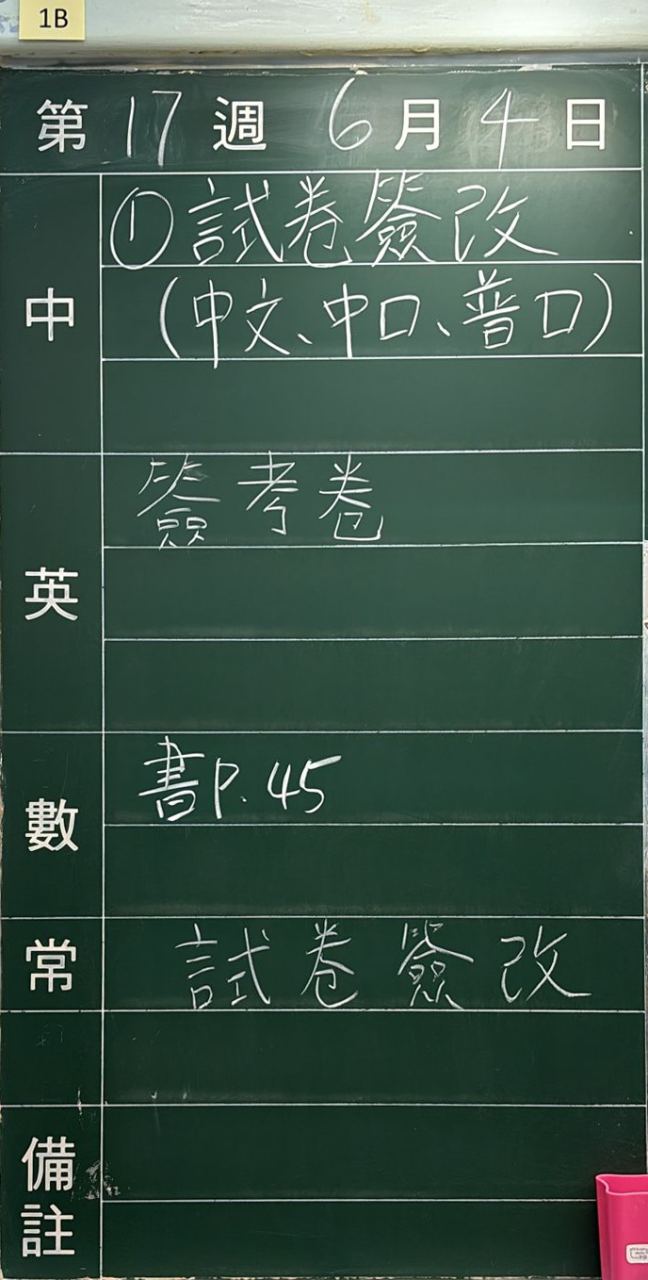 1B
第 17 週 6 月 4 日
中
①試卷簽改
(中文、中口、普口)
英
簽考卷
數
書P.45
常
試卷簽改
備註